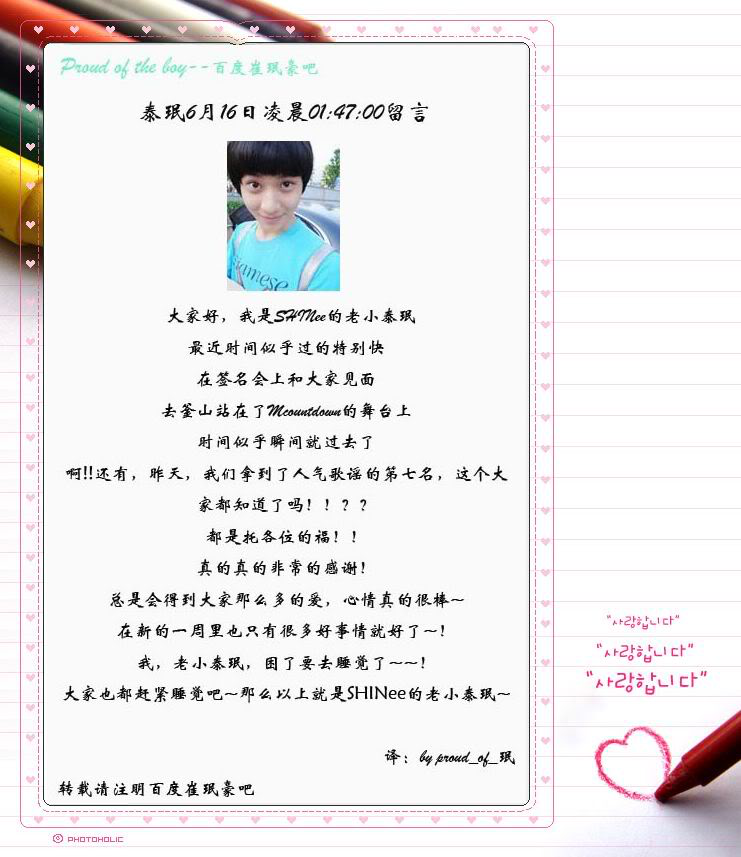 Proud of the boy--百度崔珉豪吧
泰珉6月16日凌晨01:47:00留言
siamese
大家好，我是SHINee的老小泰珉
最近时间似乎过的特别快
在签名会上和大家见面
去釜山站在了Mcountdown的舞台上
时间似乎瞬间就过去了
啊!!还有，昨天，我们拿到了人气歌谣的第七名，这个大
家都知道了吗！！？？
都是托各位的福！！
真的真的非常的感谢！
总是会得到大家那么多的爱，心情真的很棒~
在新的一周里也只有很多好事情就好了~！
我，老小泰珉，困了要去睡觉了~~！
大家也都赶紧睡觉吧~那么以上就是SHINee的老小泰珉~
译：by proud_of_珉
转载请注明百度崔珉豪吧
"사랑합니다"
"사랑합니다"
"사랑합니다"
PHOTOHOLIC